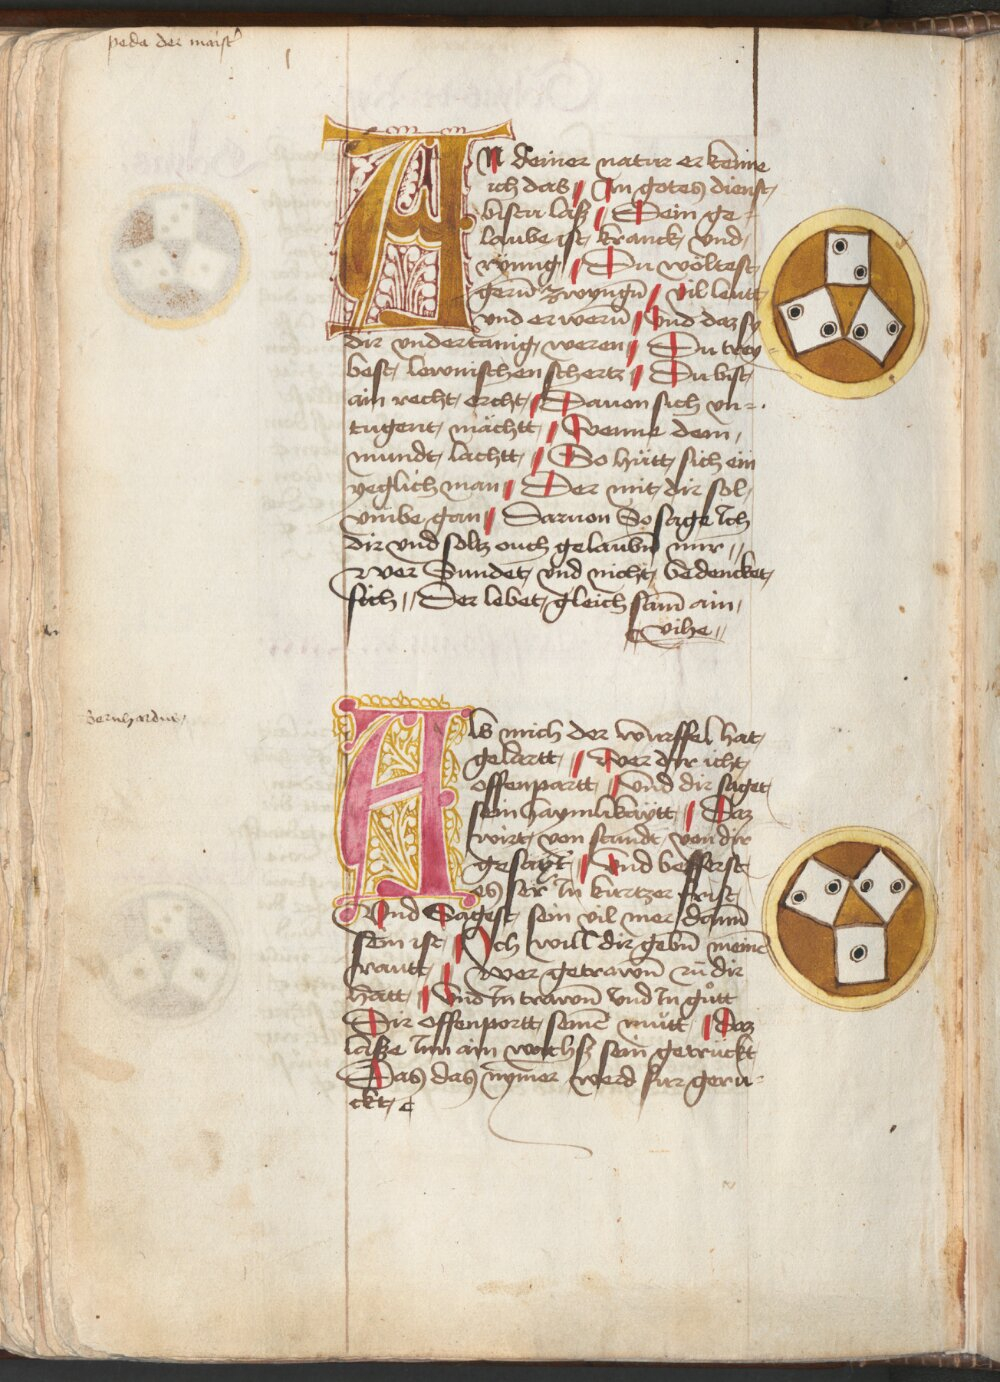 peda der maist
An deiner natur erkenne
ich das / In gotes dienst
bistu lasz / Dein ge-
laube ist kranck vnd
rynnig / Du wöltest
gern zwyngn / vil leutt
vnd erwern / Vnd daz sy
dir vndertänig weren / Du trey
best lewnischen schertz / Du bist
ain recht ercht / Dauon sich vn-
tugent mächtt / Wenne dein
mundt lachtt / So hütt sich ein
yeglich man / Der mit dir sol
vmbe gan / Daruon So sage Ich
dir vnd soltz ouch gelaubn mir //
Wer Sundet vnd nicht bedencket
sich // Der lebet gleich sam ain
vihe //
Bernhardus
Als mich der würffel hat
gelärtt / Wer dir icht
offenpartt / Vnd dir saget
sein haymlikaytt / Daz
wirt von stundt von dir
gesayt / Vnd besserst
es ser In kürtzer frist
Vnd Sagest sein vil mer dann
sein ist / Ich will dir gebn meine
rautt / Wer getrawn zu dir
hatt / Vnd In trawn Vnd In gutt
Dir offenportt seine mutt / Daz
lasze Im ain wachsz sein getrückt
Das das nymer werd fur geru-
ckt